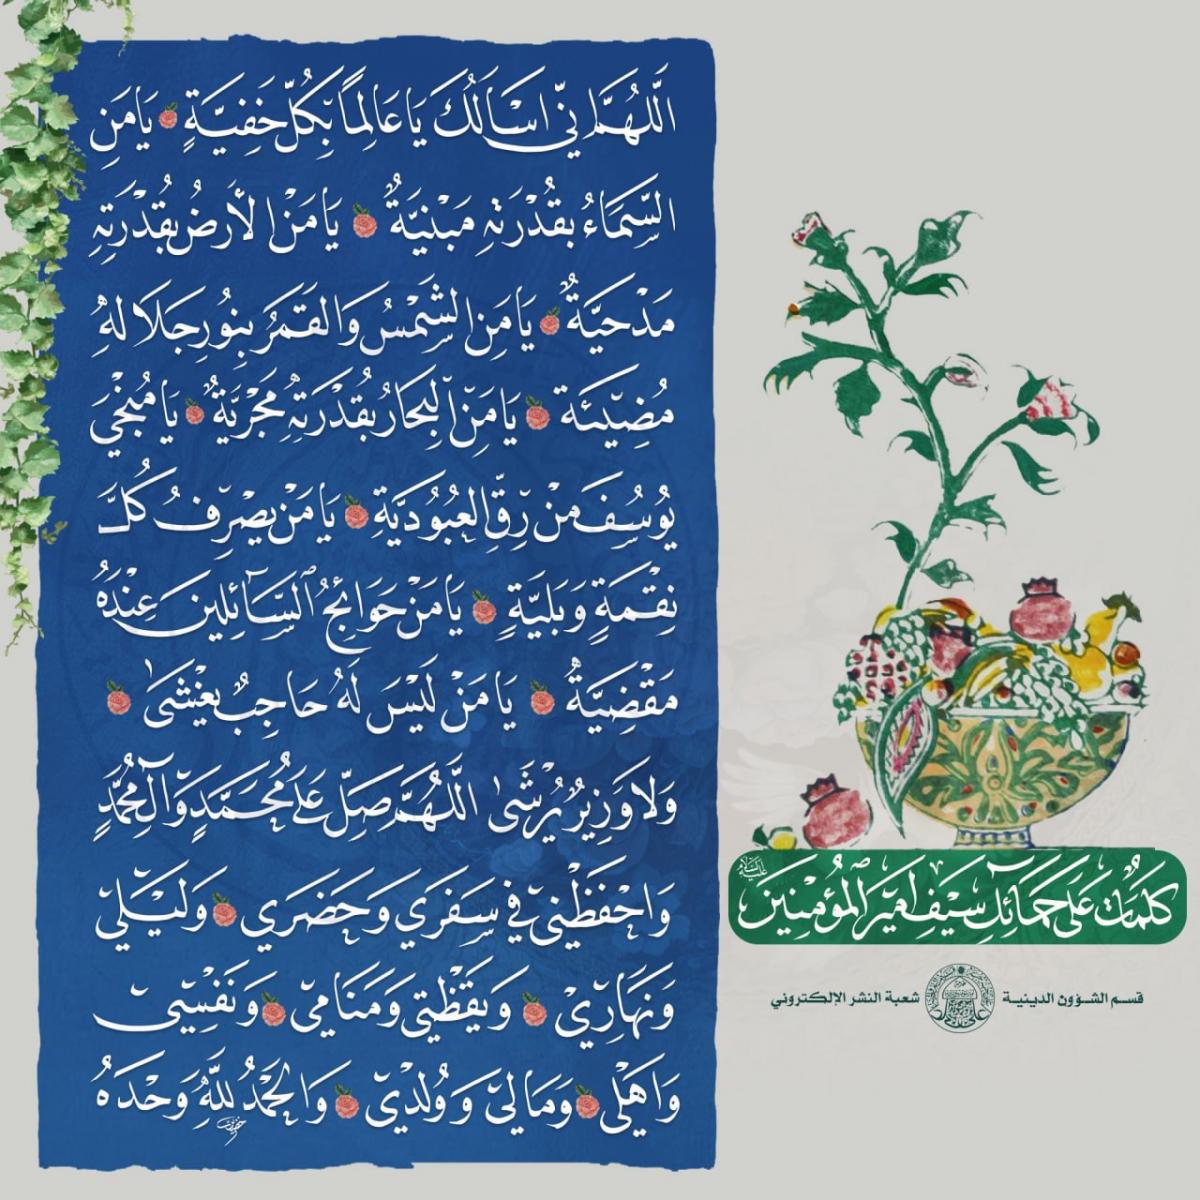 اَللّهُمَّ اِنّي اَسْاَلُكَ يَا عَالِماً بِكُلِّ خَفِيَّةٍ يَا مَنِ
السَّمَاءُ بِقُدْرَتِهِ مَبْنِيَّةٌ يَا مَنِ الأَرضُ بِقُدْرَتِهِ
مَدْحِيَّةٌ يَا مَنِ الشَّمْسُ وَالقَمَرُ بِنُورِ جَلَالِهِ
مُضِيْئَة يَا مَنِ الْبِحَارُ بِقُدْرَتِهِ مَجْرِيَّةٌ يَا مُنْجِيَ
يُوسُفَ مِنْ رِقِّ العُبُودِيَّةِ يَا مَنْ يَصْرِفُ كُلَّ
نِقْمَةٍ وَبَلِيَّةٍ يَا مَنْ حَوَائِجُ السَّائِلِينَ عِنْدَهُ
مَقْضِيَّةٌ يَا مَنْ لَيْسَ لَهُ حَاجِبٌ يُغْشَى
وَلَا وَزِيرٌ يُرْشَى اَللّهُمَّ صَلِّ عَلَى مُحَمَّدٍ وَآلِ مُحَمَّدٍ
وَاحْفَظْنِي فِي سَفَرِي وَحَضَرِي وَلَيْلِي
وَنَهَارِيْ وَيَقَظَتِي وَمَنَامِي وَنَفْسِيْ
وَاَهْلِي وَمَالِيْ وَوُلْدِيْ وَالْحَمْدُ لِلّهِ وَحْدَهُ
كَلِمَاتٌ عَلَى حَمَائِلِ سَيْفِ اَمِيْرِ الْمُؤْمِنِيْنَ عليه السلام
قسم الشؤون الدينية شعبة النشر الإلكتروني